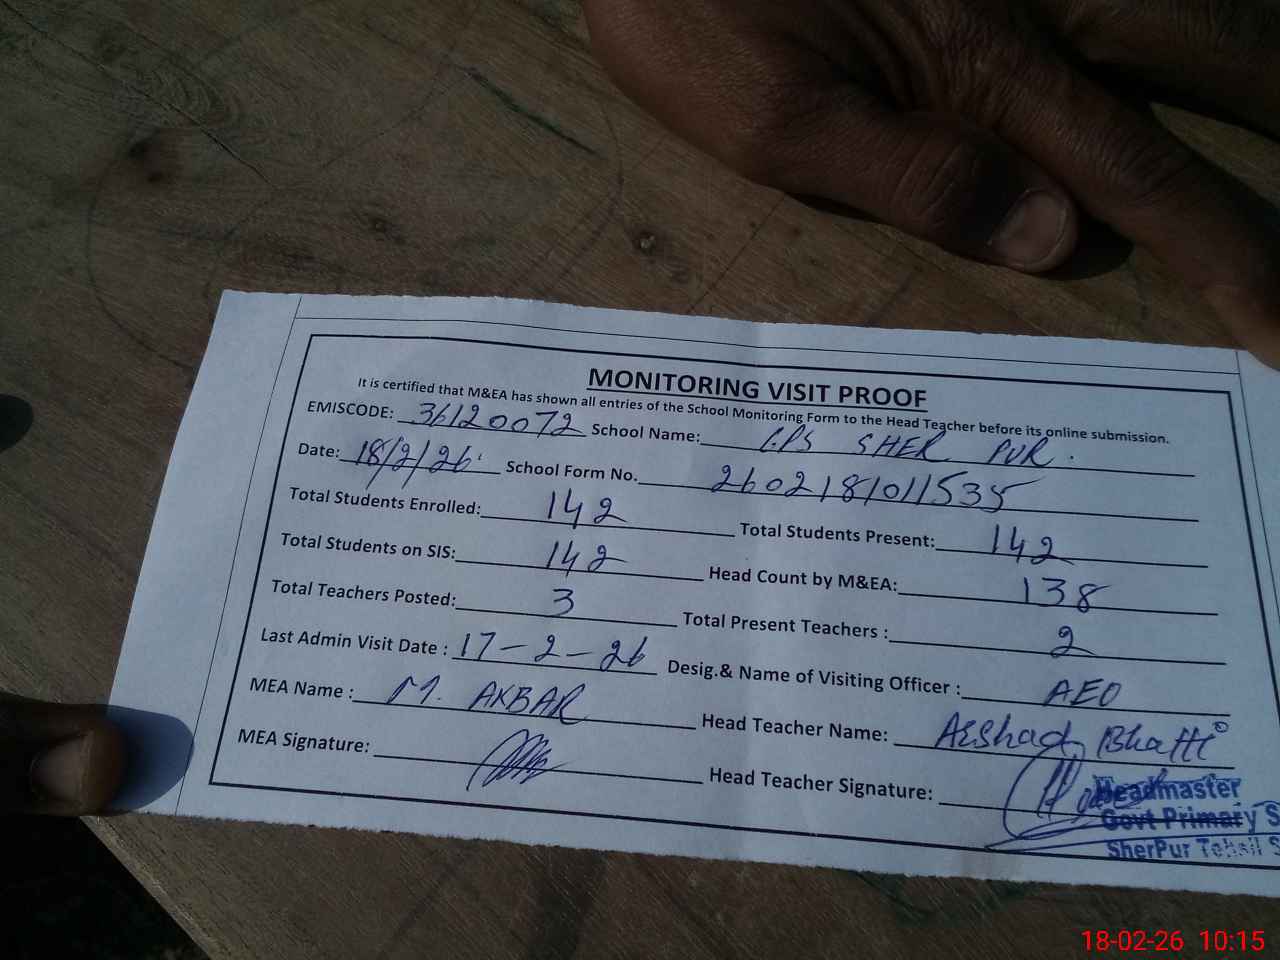 MONITORING VISIT PROOF
It is certified that M&EA has shown all entries of the School Monitoring Form to the Head Teacher before its online submission.
EMISCODE: 36120072 School Name: GPS SHER PUR.
Date: 18/2/26 School Form No. 2602181011535
Total Students Enrolled: 142 Total Students Present: 142
Total Students on SIS: 142 Head Count by M&EA: 138
Total Teachers Posted: 3 Total Present Teachers : 2
Last Admin Visit Date : 17-2-26 Desig.& Name of Visiting Officer : AEO
MEA Name : M. AKBAR Head Teacher Name: Arshad Bhatti
MEA Signature: Head Teacher Signature:
Headmaster
Govt Primary S
SherPur Tehsil S
18-02-26 10:15